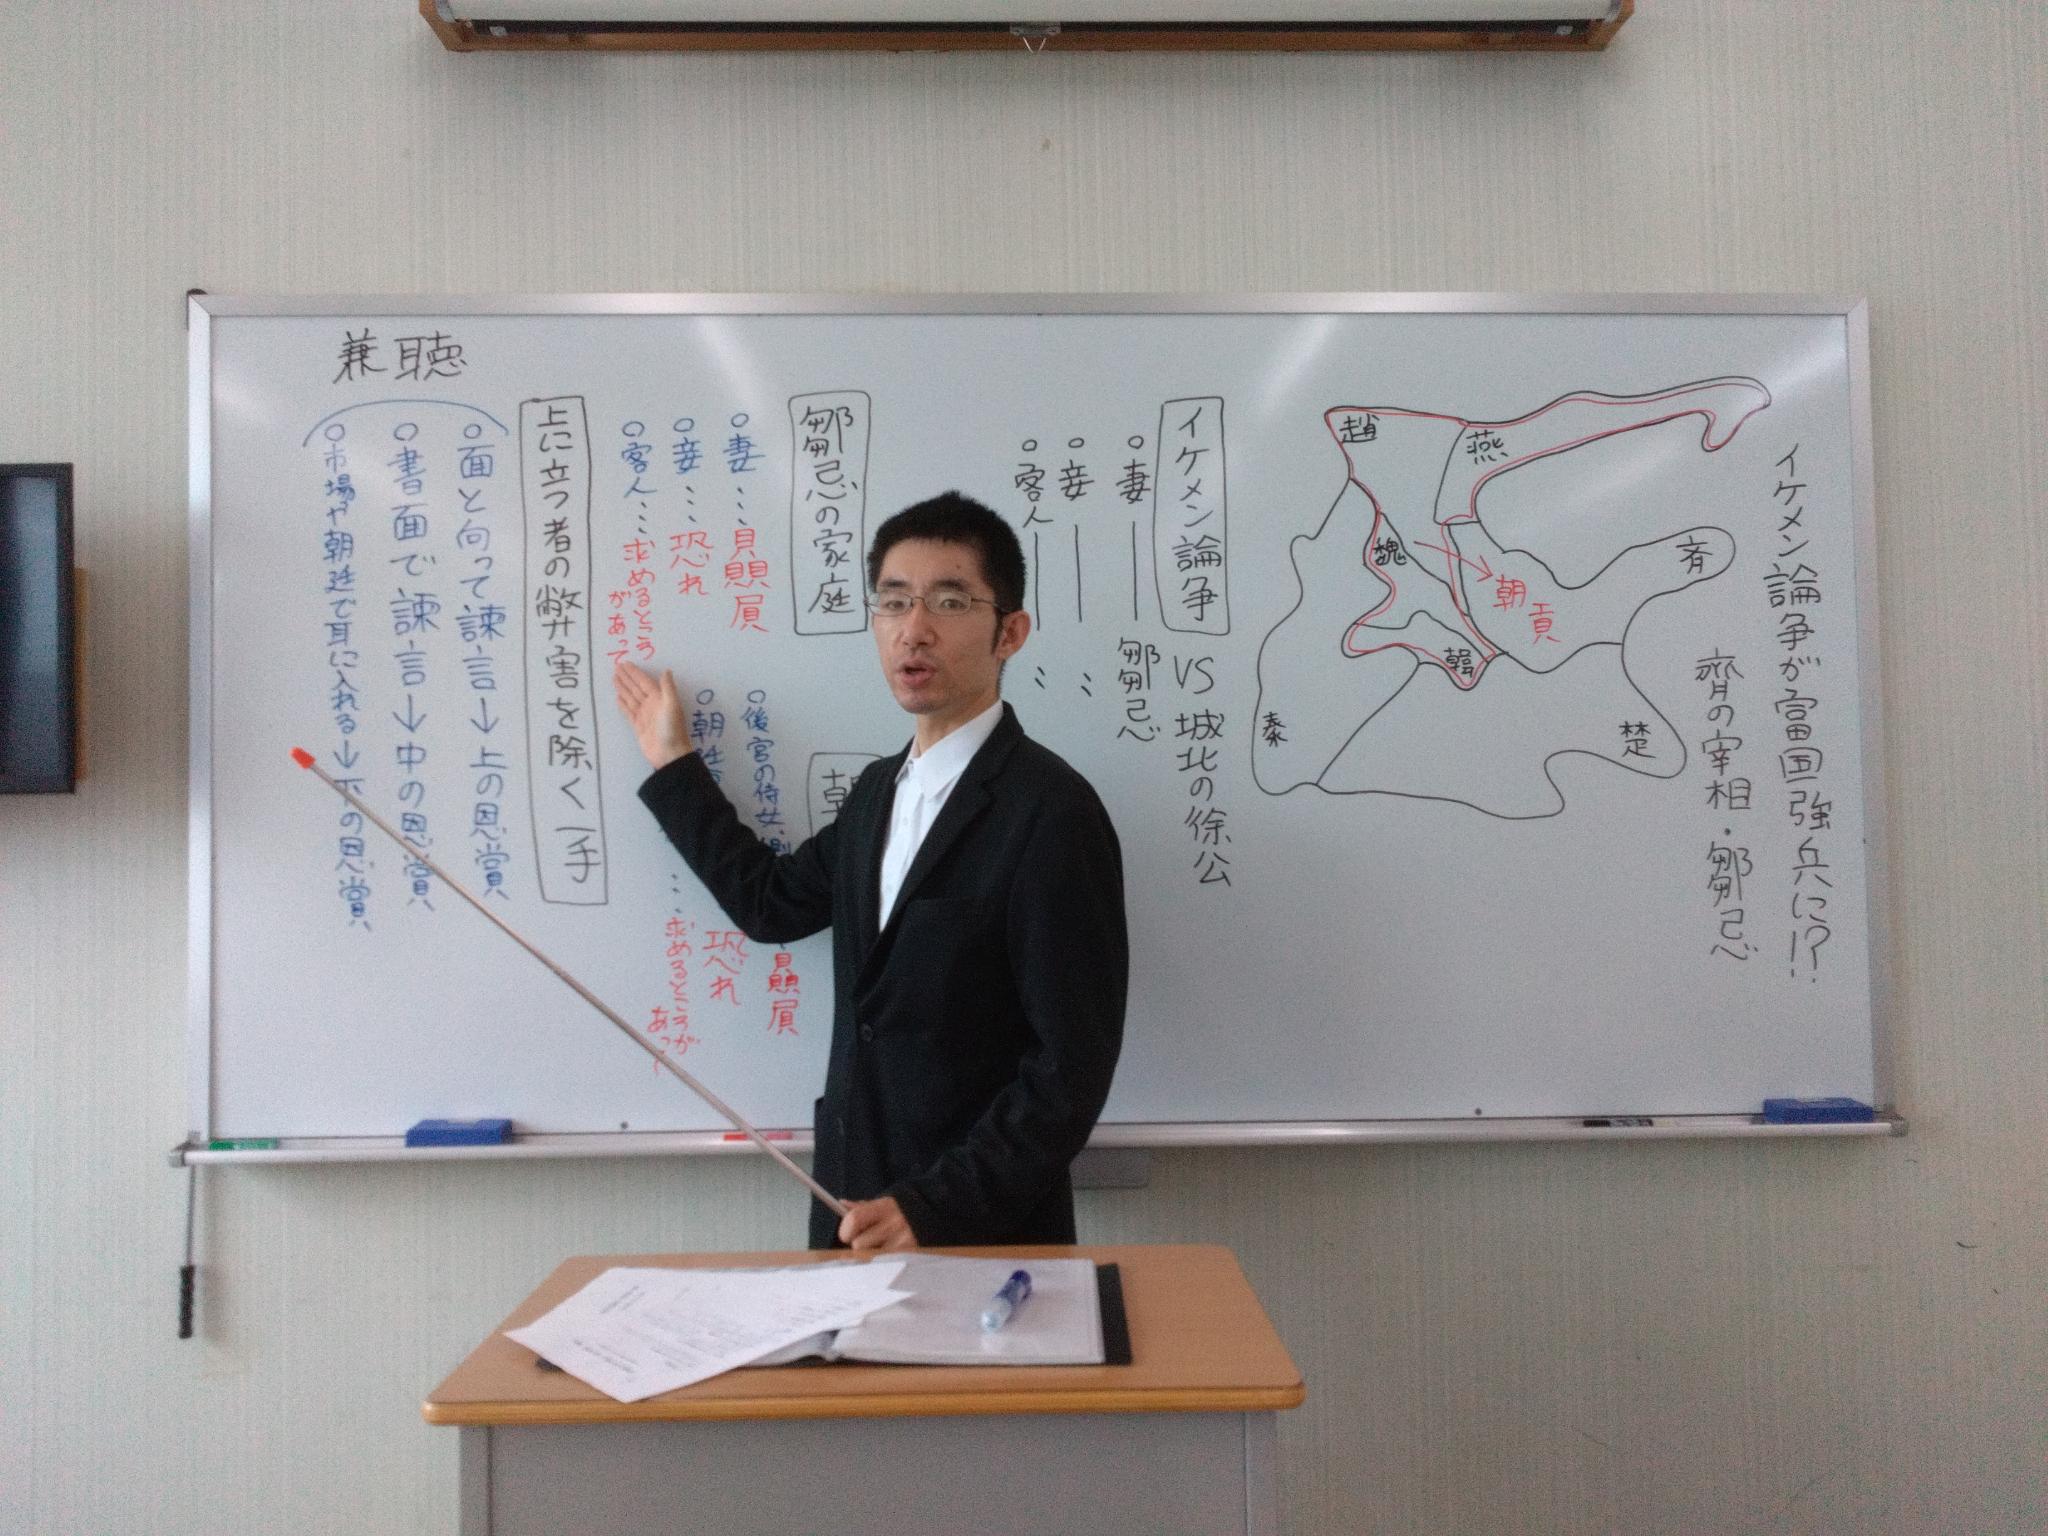 イケメン論争が富国強兵に!?
齊の宰相・鄒忌
趙
燕
魏
斉
韓
秦
楚
朝貢
イケメン論争
VS 城北の徐公
妻 鄒忌
妾 〃
客人 〃
鄒忌の家庭
妻…贔屓
妾…恐れ
客人…求めるところ
があって
朝
後宮の侍女、側
贔屓
朝廷
恐れ
…求めるところが
あって
上に立つ者の弊害を除く一手
兼聴
面と向って諫言→上の恩賞
書面で諫言→中の恩賞
市場や朝廷で耳に入れる→下の恩賞